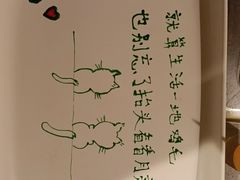 就算生活一地鸡毛
也别忘了抬头看看月